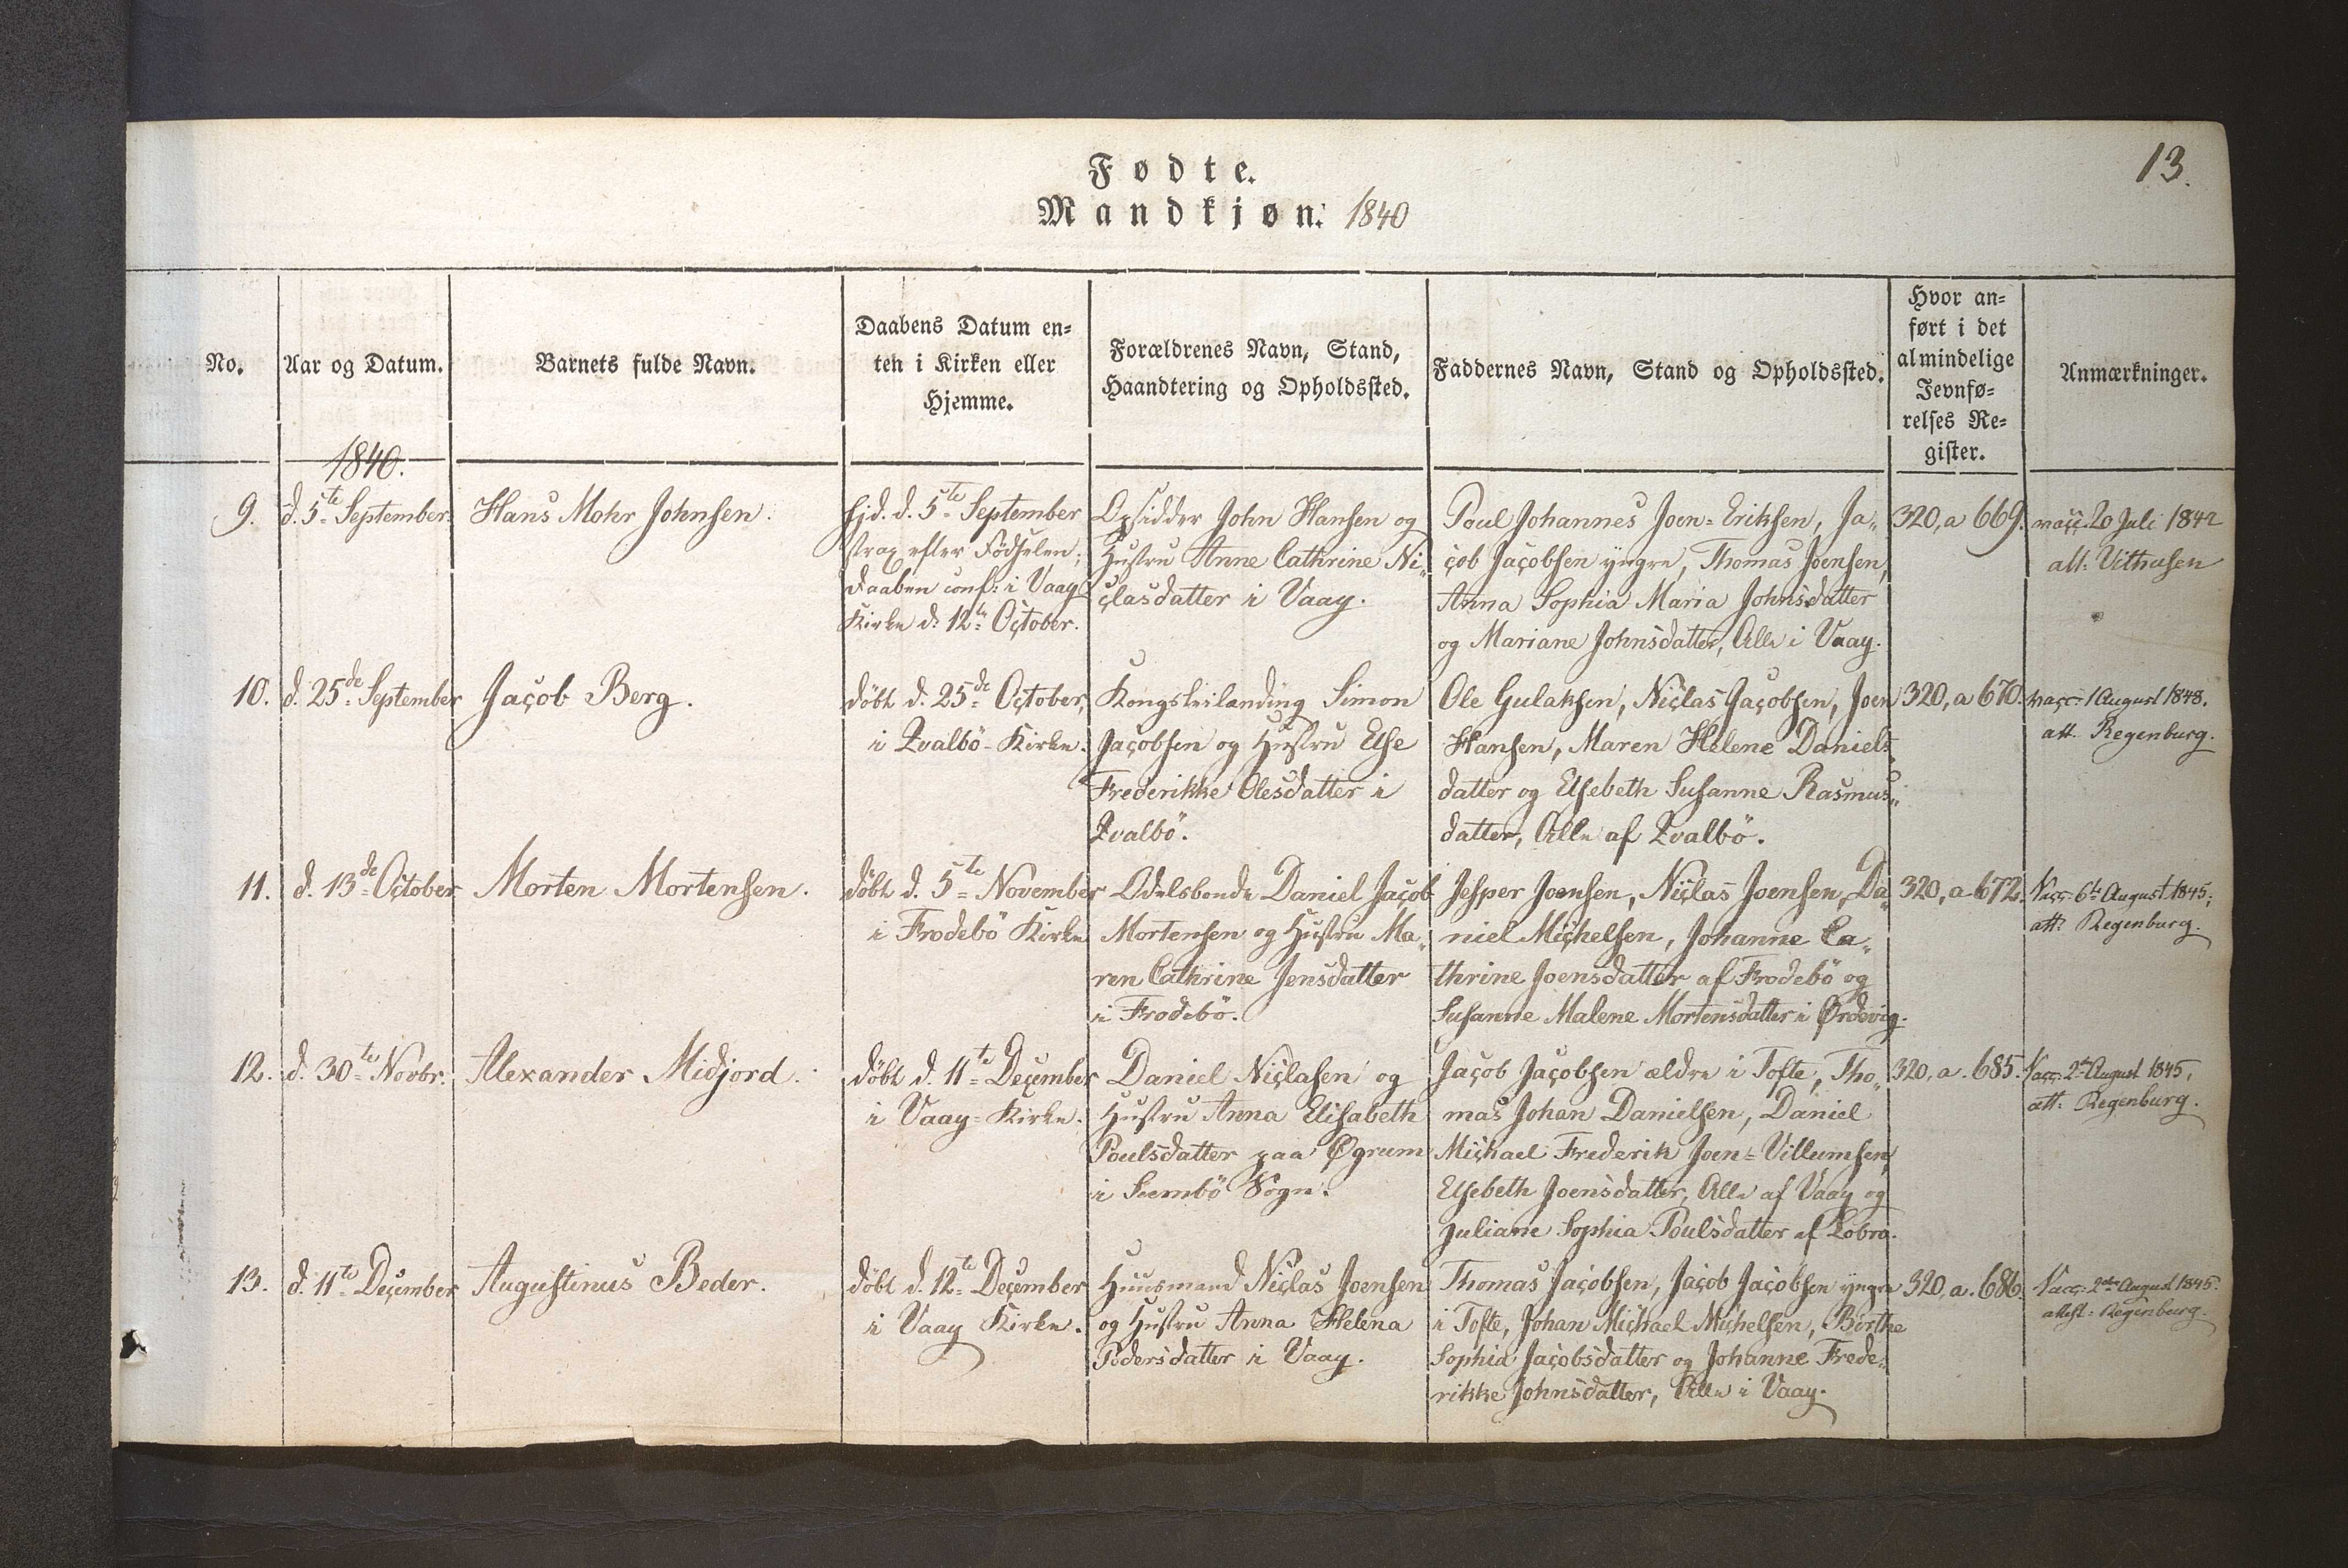 13.
Fødte.
Mandkjøn. 1840
No.
Aar og Datum.
Barnets fulde Navn.
Daabens Datum en=
ten i Kirken eller
Hjemme.
Forældrenes Navn, Stand,
Haandtering og Opholdssted.
Faddernes Navn, Stand og Opholdssted.
Hvor an=
ført i det
almindelige
Jevnfø=
relses Re=
gister.
Anmærkninger.
1840.
9.
d. 5te September
Hans Mohr Johnsen.
hjd. d. 5te September
strax efter Födselen;
daaben conf: i Vaag
Kirke d: 12te October.
Opsidder John Hansen og
Hustru Anne Cathrine Ni„
clasdatter i Vaag.
Poul Johannes Joen=Eriksen, Ja„
cob Jacobsen yngre, Thomas Joensen,
Anna Sophia Maria Johnsdatter
og Mariane Johnsdatter, Alle i Vaag.
320, a 669.
vacc. 20 Juli 1842
att: Vithusen
10.
d. 25de September
Jacob Berg.
döbt d. 25de October,
i Qvalbö-Kirke.
Kongsleilænding Simon
Jacobsen og Hustru Else
Frederikke Olesdatter i
Qvalbö.
Ole Gulaksen, Niclas Jacobsen, Joen
Hansen, Maren Helene Daniels„
datter og Elsebeth Susanne Rasmus„
datter, Alle af Qvalbö.
320, a 670.
vacc. 1 August 1848.
att. Regenburg.
11.
d. 13de October
Morten Mortensen.
döbt d. 5te November
i Frodebö Kirke
Odelsbonde Daniel Jacob
Mortensen og Hustru Ma„
ren Cathrine Jensdatter
i Frodebö.
Jesper Joensen, Niclas Joensen, Da„
niel Michelsen, Johanne Ca„
thrine Joensdatter af Frodebö og
Susanne Malene Mortensdatter i Ørdevig.
320, a 672.
Vacc: 6te August 1845;
att: Regenburg.
12.
d. 30te Novbr.
Alexander Midjord.
döbt d. 11te December
i Vaag=Kirke.
Daniel Niclasen og
Hustru Anna Elisabeth
Poulsdatter paa Øgrum
i Suembö Sogn.
Jacob Jacobsen ældre i Tofte, Tho„
mas Johan Danielsen, Daniel
Michael Frederik Joen=Villumsen,
Elsebeth Joensdatter, Alle af Vaag og
Juliane Sophia Poulsdatter af Lobra.
320, a. 685.
Vacc: 2den August 1845,
att: Regenburg.
13.
d. 11te December
Augustinus Beder.
döbt d. 12te December
i Vaag Kirke.
Huusmand Niclas Joensen
og Hustru Anna Helena
Pedersdatter i Vaag.
Thomas Jacobsen, Jacob Jacobsen yngre
i Tofte, Johan Michael Michelsen, Birthe
Sophia Jacobsdatter og Johanne Frede„
rikke Johnsdatter, Alle i Vaag.
320, a. 686.
Vacc: 2den August 1845.
attest: Regenburg.